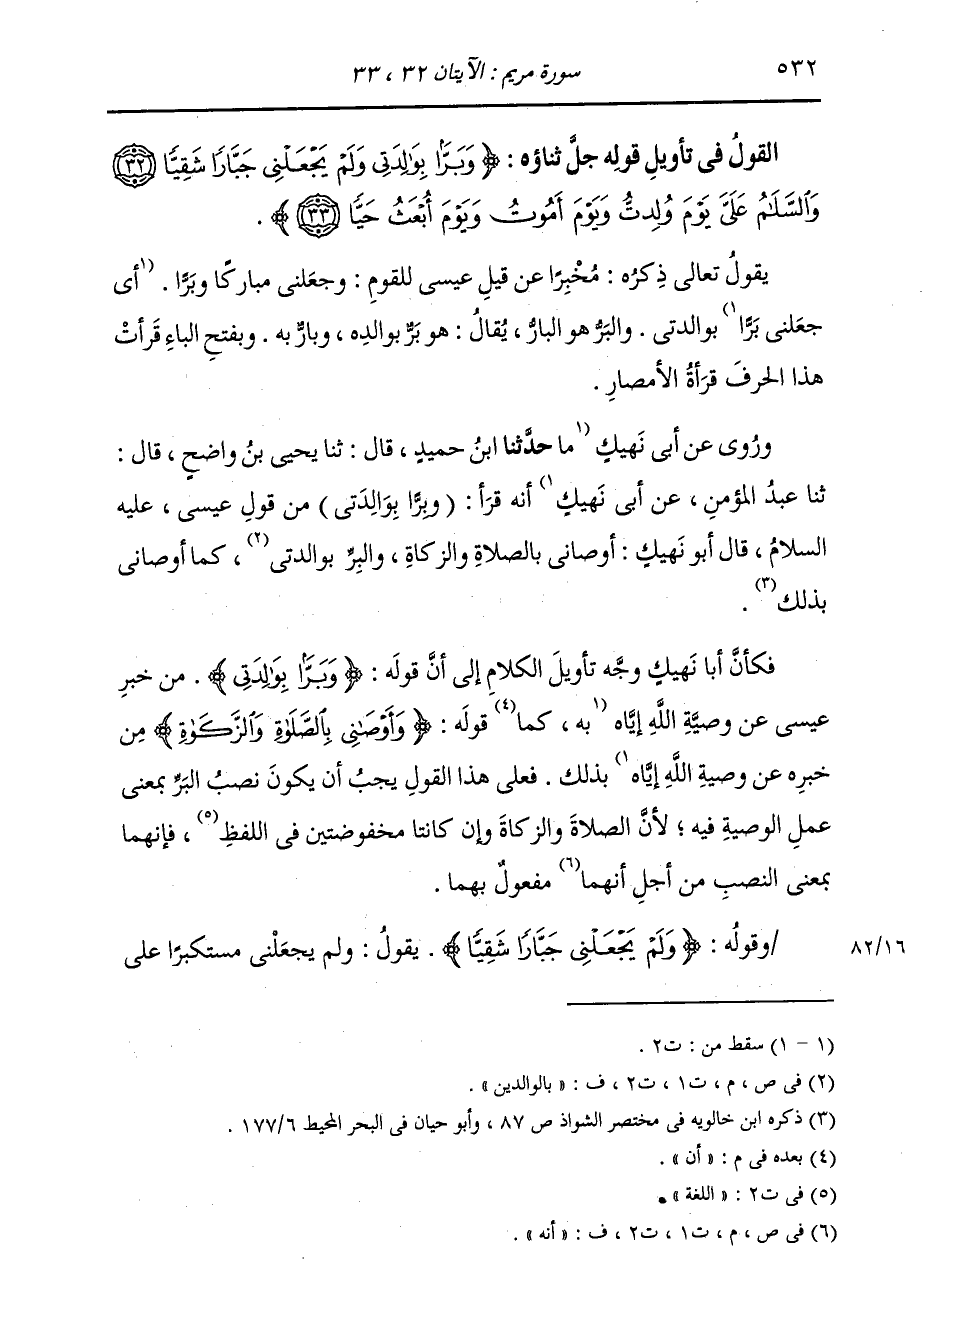 ٥٣٢
سورة مريم : الآيتان ٣٢ ، ٣٣
القولُ فى تأويلِ قولِه جلَّ ثناؤه : ﴿ وَبَرًّا بِوَٰلِدَتِى وَلَمْ يَجْعَلْنِى جَبَّارًا شَقِيًّا ﴿٣٢﴾
وَٱلسَّلَٰمُ عَلَىَّ يَوْمَ وُلِدتُّ وَيَوْمَ أَمُوتُ وَيَوْمَ أُبْعَثُ حَيًّا ﴿٣٣﴾ ﴾ .
يقولُ تعالى ذِكرُه : مُخْبِرًا عن قيلِ عيسى للقومِ : وجعَلنى مباركًا وبَرًّا . (١أى
جعَلنى بَرًّا١) بوالدتى . والبَرُّ هو البارُّ ، يُقالُ : هو بَرٌّ بوالدِه ، وبارٌّ به . وبفتحِ الباءِ قَرأتْ
هذا الحرفَ قرَأةُ الأمصارِ .
ورُوِى عن أبى نَهيكٍ (١ما حدَّثنا ابنُ حميدٍ ، قال : ثنا يحيى بنُ واضحٍ ، قال :
ثنا عبدُ المؤمنِ ، عن أبى نَهيكٍ١) أنه قرَأ : ( وبِرًّا بِوَالِدَتى ) من قولِ عيسى ، عليه
السلامُ ، قال أبو نَهيكٍ : أوصانى بالصلاةِ والزكاةِ ، والبِرِّ بوالدتى(٢) ، كما أوصانى
بذلك(٣) .
فكأنَّ أبا نَهيكٍ وجَّه تأويلَ الكلامِ إلى أنَّ قولَه : ﴿ وَبَرًّا بِوَٰلِدَتِى ﴾ . من خبرِ
عيسى عن وصيَّةِ اللَّهِ إيَّاه (١به ، كما(٤) قولَه : ﴿ وَأَوْصَٰنِى بِٱلصَّلَوٰةِ وَٱلزَّكَوٰةِ ﴾ مِن
خبرِه عن وصيةِ اللَّهِ إيَّاه١) بذلك . فعلى هذا القولِ يجبُ أن يكونَ نصبُ البَرِّ بمعنى
عملِ الوصيةِ فيه ؛ لأنَّ الصلاةَ والزكاةَ وإن كانتا مخفوضتين فى اللفظِ(٥) ، فإنهما
بمعنى النصبِ من أجلِ أنهما(٦) مفعولٌ بهما .
٨٢/١٦ /وقولُه : ﴿ وَلَمْ يَجْعَلْنِى جَبَّارًا شَقِيًّا ﴾ . يقولُ : ولم يجعَلْنى مستكبرًا على
(١ - ١) سقط من : ت٢ .
(٢) فى ص ، م ، ت١ ، ت٢ ، ف : « بالوالدين » .
(٣) ذكره ابن خالويه فى مختصر الشواذ ص ٨٧ ، وأبو حيان فى البحر المحيط ١٧٧/٦ .
(٤) بعده فى م : « أن » .
(٥) فى ت٢ : « اللغة » .
(٦) فى ص ، م ، ت١ ، ت٢ ، ف : « أنه » .